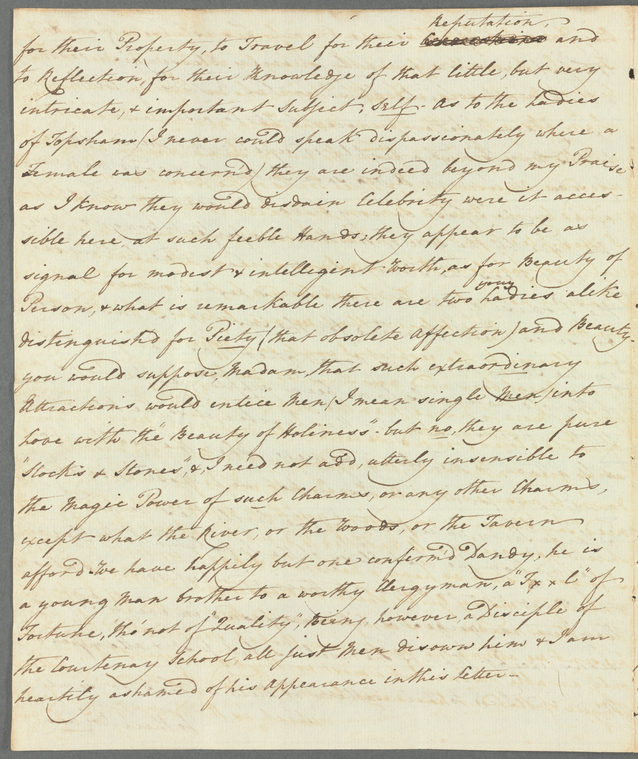 Reputation,
for their Property, to Travel for their and
to Reflection, for their Knowledge of that little, but very
intricate, & important Subject, Self. As to the Ladies
of Topsham (I never could speak dispassionately where a
Female was concern'd) they are indeed beyond my Praise
as I know they would disdain Celebrity were it acces-
sible here at such feeble Hands; they appear to be as
signal for modest & intelligent Worth, as for Beauty of
young
Person, & what is remarkable there are two Ladies alike
distinguish'd for Piety (that obsolete Affection) and Beauty.
you would suppose, Madam, that such extraordinary
Attractions would entice Men, (I mean single Men) into
Love with the "Beauty of Holiness" - but no, they are pure
"Stocks & Stones", & I need not add, utterly insensible to
the Magic Power of such Charms, or any other Charms,
except what the River, or the Woods, or the Tavern
afford. We have happily but one confirm'd Dandy, he is
a young Man brother to a worthy Clergyman, a "F x x l" of
Fortune, tho' not of "Quality", Being, however, a Disciple of
the Courtenay School, all just Men disown him & I am
heartily ashamed of his Appearance in this Letter -